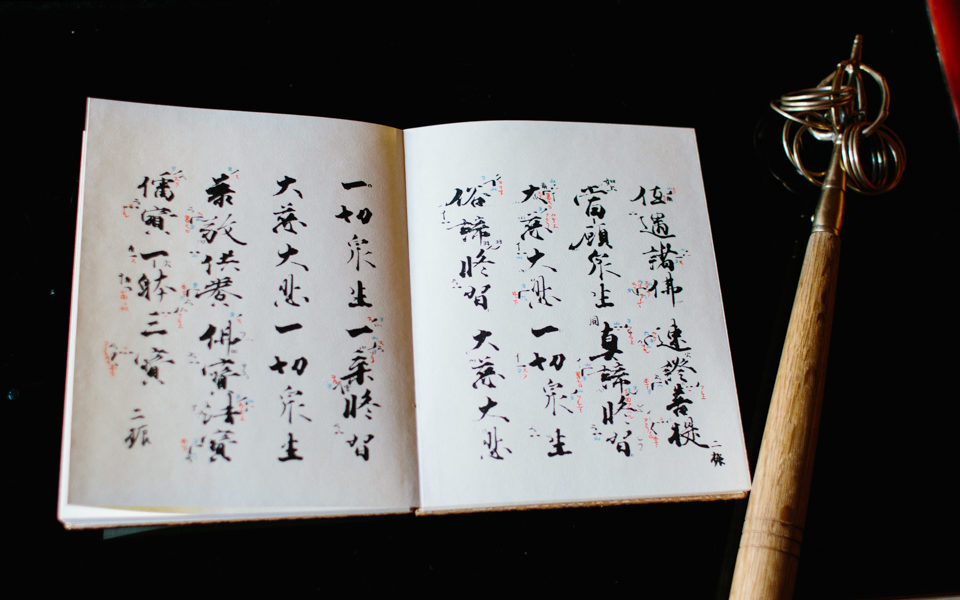 値遇諸佛速證菩提二振
當願衆生真諦修習
大慈大悲一切衆生
俗諦修習大慈大悲
一切衆生一乗修習
大慈大悲一切衆生
恭敬供養佛寳法寳
僧寳一躰三寳二振